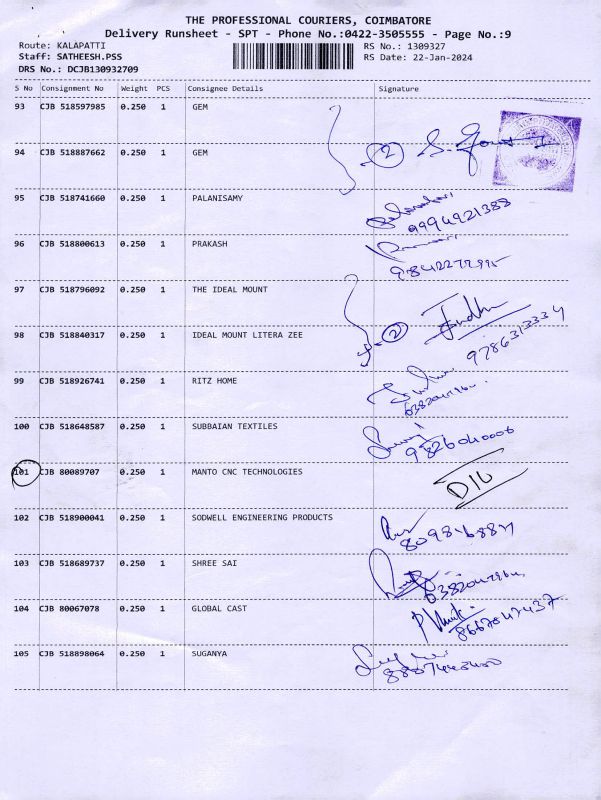 THE PROFESSIONAL COURIERS, COIMBATORE
Delivery Runsheet - SPT - Phone No.:0422-3505555 - Page No.:9
Route: KALAPATTI RS No.: 1309327
Staff: SATHEESH.PSS RS Date: 22-Jan-2024
DRS No.: DCJB130932709
S No Consignment No Weight PCS Consignee Details Signature
93 CJB 518597985 0.250 1 GEM
94 CJB 518887662 0.250 1 GEM 2
95 CJB 518741660 0.250 1 PALANISAMY
9994921388
96 CJB 518800613 0.250 1 PRAKASH
97 CJB 518796092 0.250 1 THE IDEAL MOUNT
98 CJB 518840317 0.250 1 IDEAL MOUNT LITERA ZEE 2
9786313334
99 CJB 518926741 0.250 1 RITZ HOME
100 CJB 518648587 0.250 1 SUBBAIAN TEXTILES
101 CJB 80089707 0.250 1 MANTO CNC TECHNOLOGIES
102 CJB 518900041 0.250 1 SODWELL ENGINEERING PRODUCTS
103 CJB 518689737 0.250 1 SHREE SAI
104 CJB 80067078 0.250 1 GLOBAL CAST
8667047437
105 CJB 518898064 0.250 1 SUGANYA